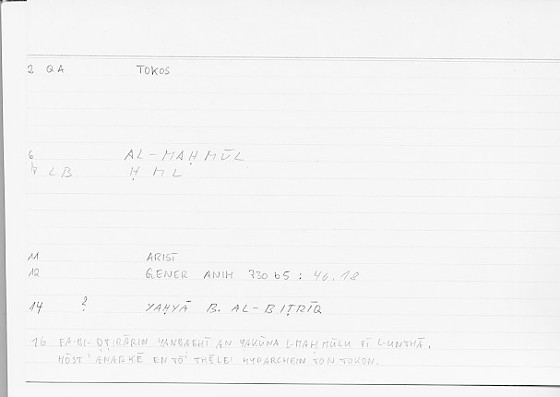 2 QA TOKOS
6 AL-MAḤMŪL
7 LB Ḥ M L
11 ARIST
12 GENER ANIM 730 b5 : 46.18
14 ? YAḤYĀ B. AL-BIṬRĪQ
16 FA-BI-ḌṬIRĀRIN YANBAĠĪ AN YAKŪNA L-MAḤMŪLU FĪ L-UNṮĀ.
HŌST' ANANKĒ EN TŌ' THĒLEI HYPARCHEIN TON TOKON.